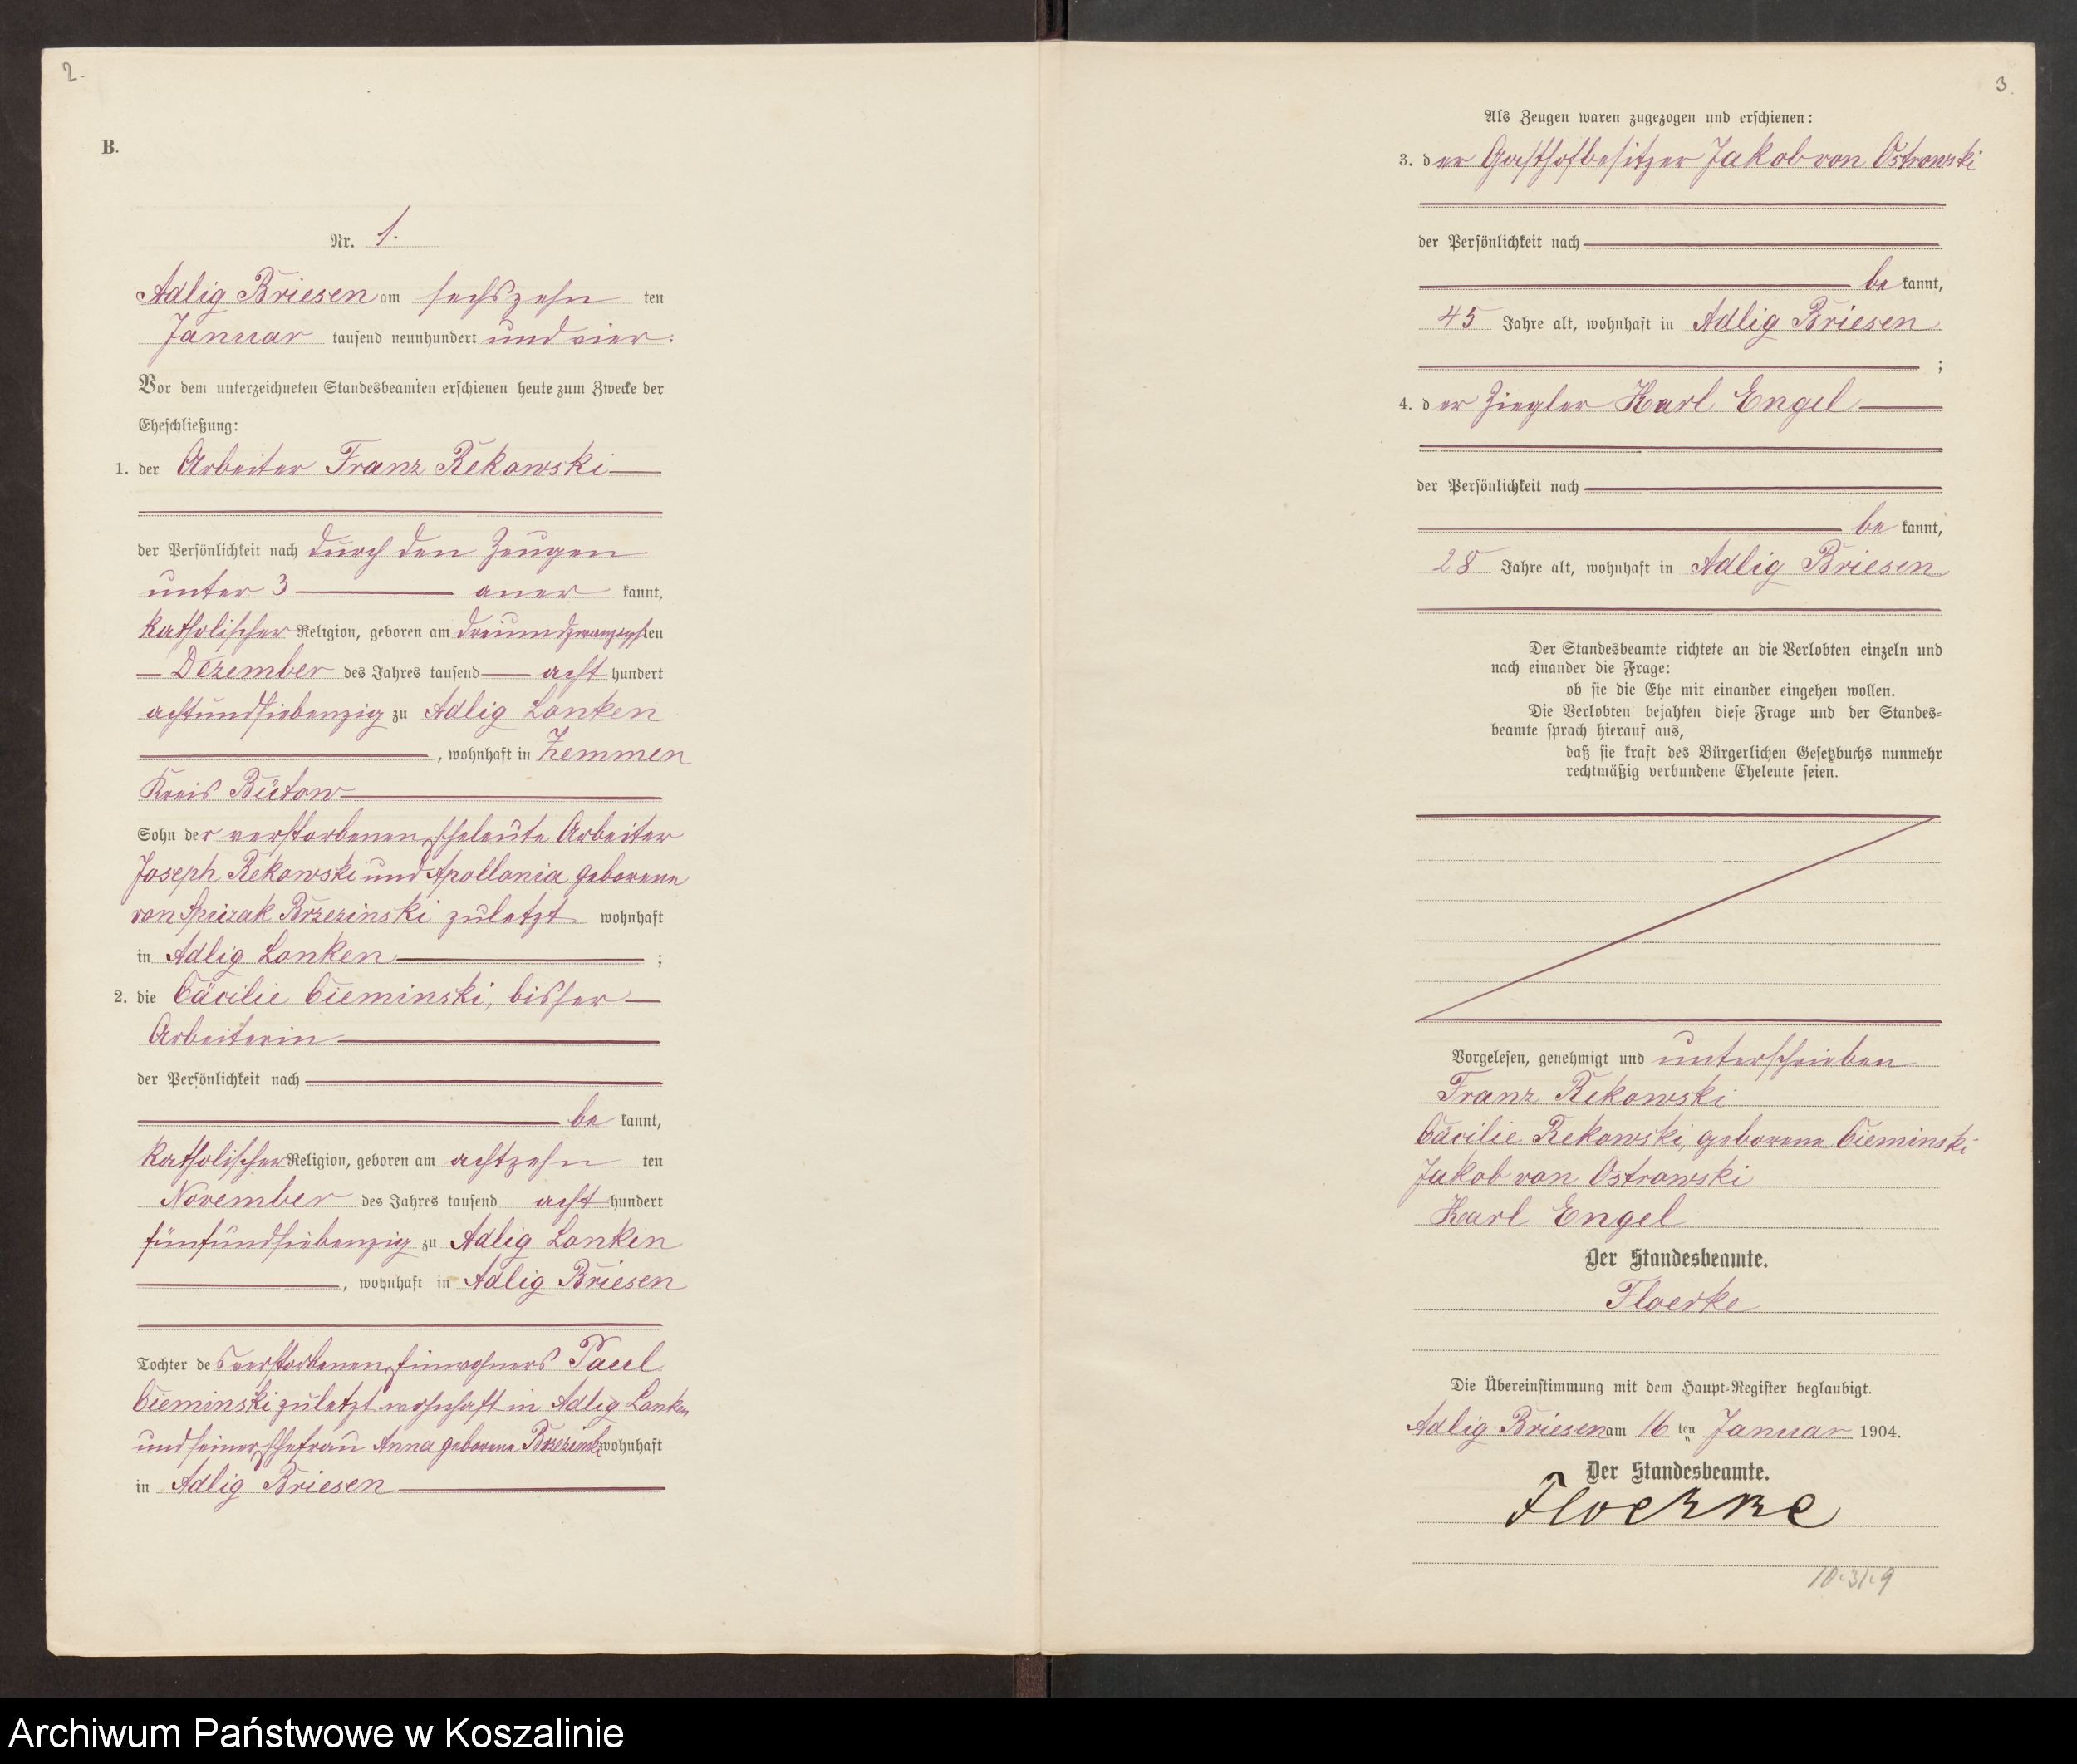 2.
B.
Nr. 1.
Adlig Briesen am sechszehn ten
Januar tausend neunhundert und vier.
Vor dem unterzeichneten Standesbeamten erschienen heute zum Zwecke der
Eheschließung:
1. der Arbeiter Franz Rekowski
der Persönlichkeit nach durch den Zeugen
unter 3 aner kannt,
katholischer Religion, geboren am dreiundzwanzigsten
Dezember des Jahres tausend acht hundert
achtundsiebenzig zu Adlig Lonken
, wohnhaft in Zemmen
Kreis Bütow
Sohn der verstorbenen Eheleute Arbeiter
Joseph Rekowski und Apollonia geborene
von Brzezinski zuletzt wohnhaft
in Adlig Lonken ;
2. die Cäcilie Cieminski, bisher
Arbeiterin
der Persönlichkeit nach
be kannt,
katholischer Religion, geboren am achtzehn ten
November des Jahres tausend acht hundert
fünfundsiebenzig zu Adlig Lonken
, wohnhaft in Adlig Briesen
Tochter des verstorbenen Einwohners Paul
Cieminski zuletzt wohnhaft in Adlig Lonken
und seiner Ehefrau Anna geborene Brzezinski wohnhaft
in Adlig Briesen
3.
Als Zeugen waren zugezogen und erschienen:
3. der Gasthofbesitzer Jakob von Ostrowski
der Persönlichkeit nach
be kannt,
45 Jahre alt, wohnhaft in Adlig Briesen
;
4. der Ziegler Karl Engel
der Persönlichkeit nach
be kannt,
28 Jahre alt, wohnhaft in Adlig Briesen
Der Standesbeamte richtete an die Verlobten einzeln und
nach einander die Frage:
ob sie die Ehe mit einander eingehen wollen.
Die Verlobten bejahten diese Frage und der Standes-
beamte sprach hierauf aus,
daß sie kraft des Bürgerlichen Gesetzbuchs nunmehr
rechtmäßig verbundene Eheleute seien.
Vorgelesen, genehmigt und unterschrieben
Franz Rekowski
Cäcilie Rekowski, geborene Cieminski
Jakob von Ostrowski
Karl Engel
Der Standesbeamte.
Floerke
Die Übereinstimmung mit dem Haupt-Register beglaubigt.
Adlig Briesen am 16 ten Januar 1904.
Der Standesbeamte.
Floerke
Archiwum Państwowe w Koszalinie